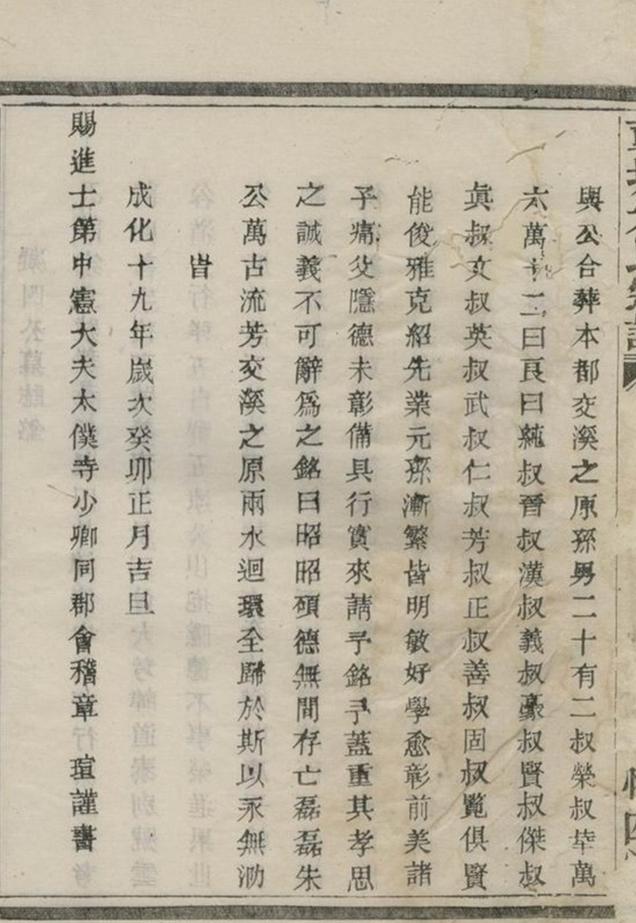 與公合葬本都交溪之原孫男二十有二叔榮叔莘萬
六萬十二曰良曰純叔晉叔漢叔義叔豪叔賢叔傑叔
眞叔文叔英叔武叔仁叔芳叔正叔善叔固叔覽俱賢
能俊雅克紹先業元孫漸繁皆明敏好學愈彰前美諸
子痛父隱德未彰備具行實來請予銘予蓋重其孝思
之誠義不可辭爲之銘曰昭昭碩德無間存亡磊磊朱
公萬古流芳交溪之原兩水迴環全歸於斯以永無泐
旹
成化十九年歲次癸卯正月吉旦
賜進士第中憲大夫太僕寺少卿同郡會稽章 瑄謹書